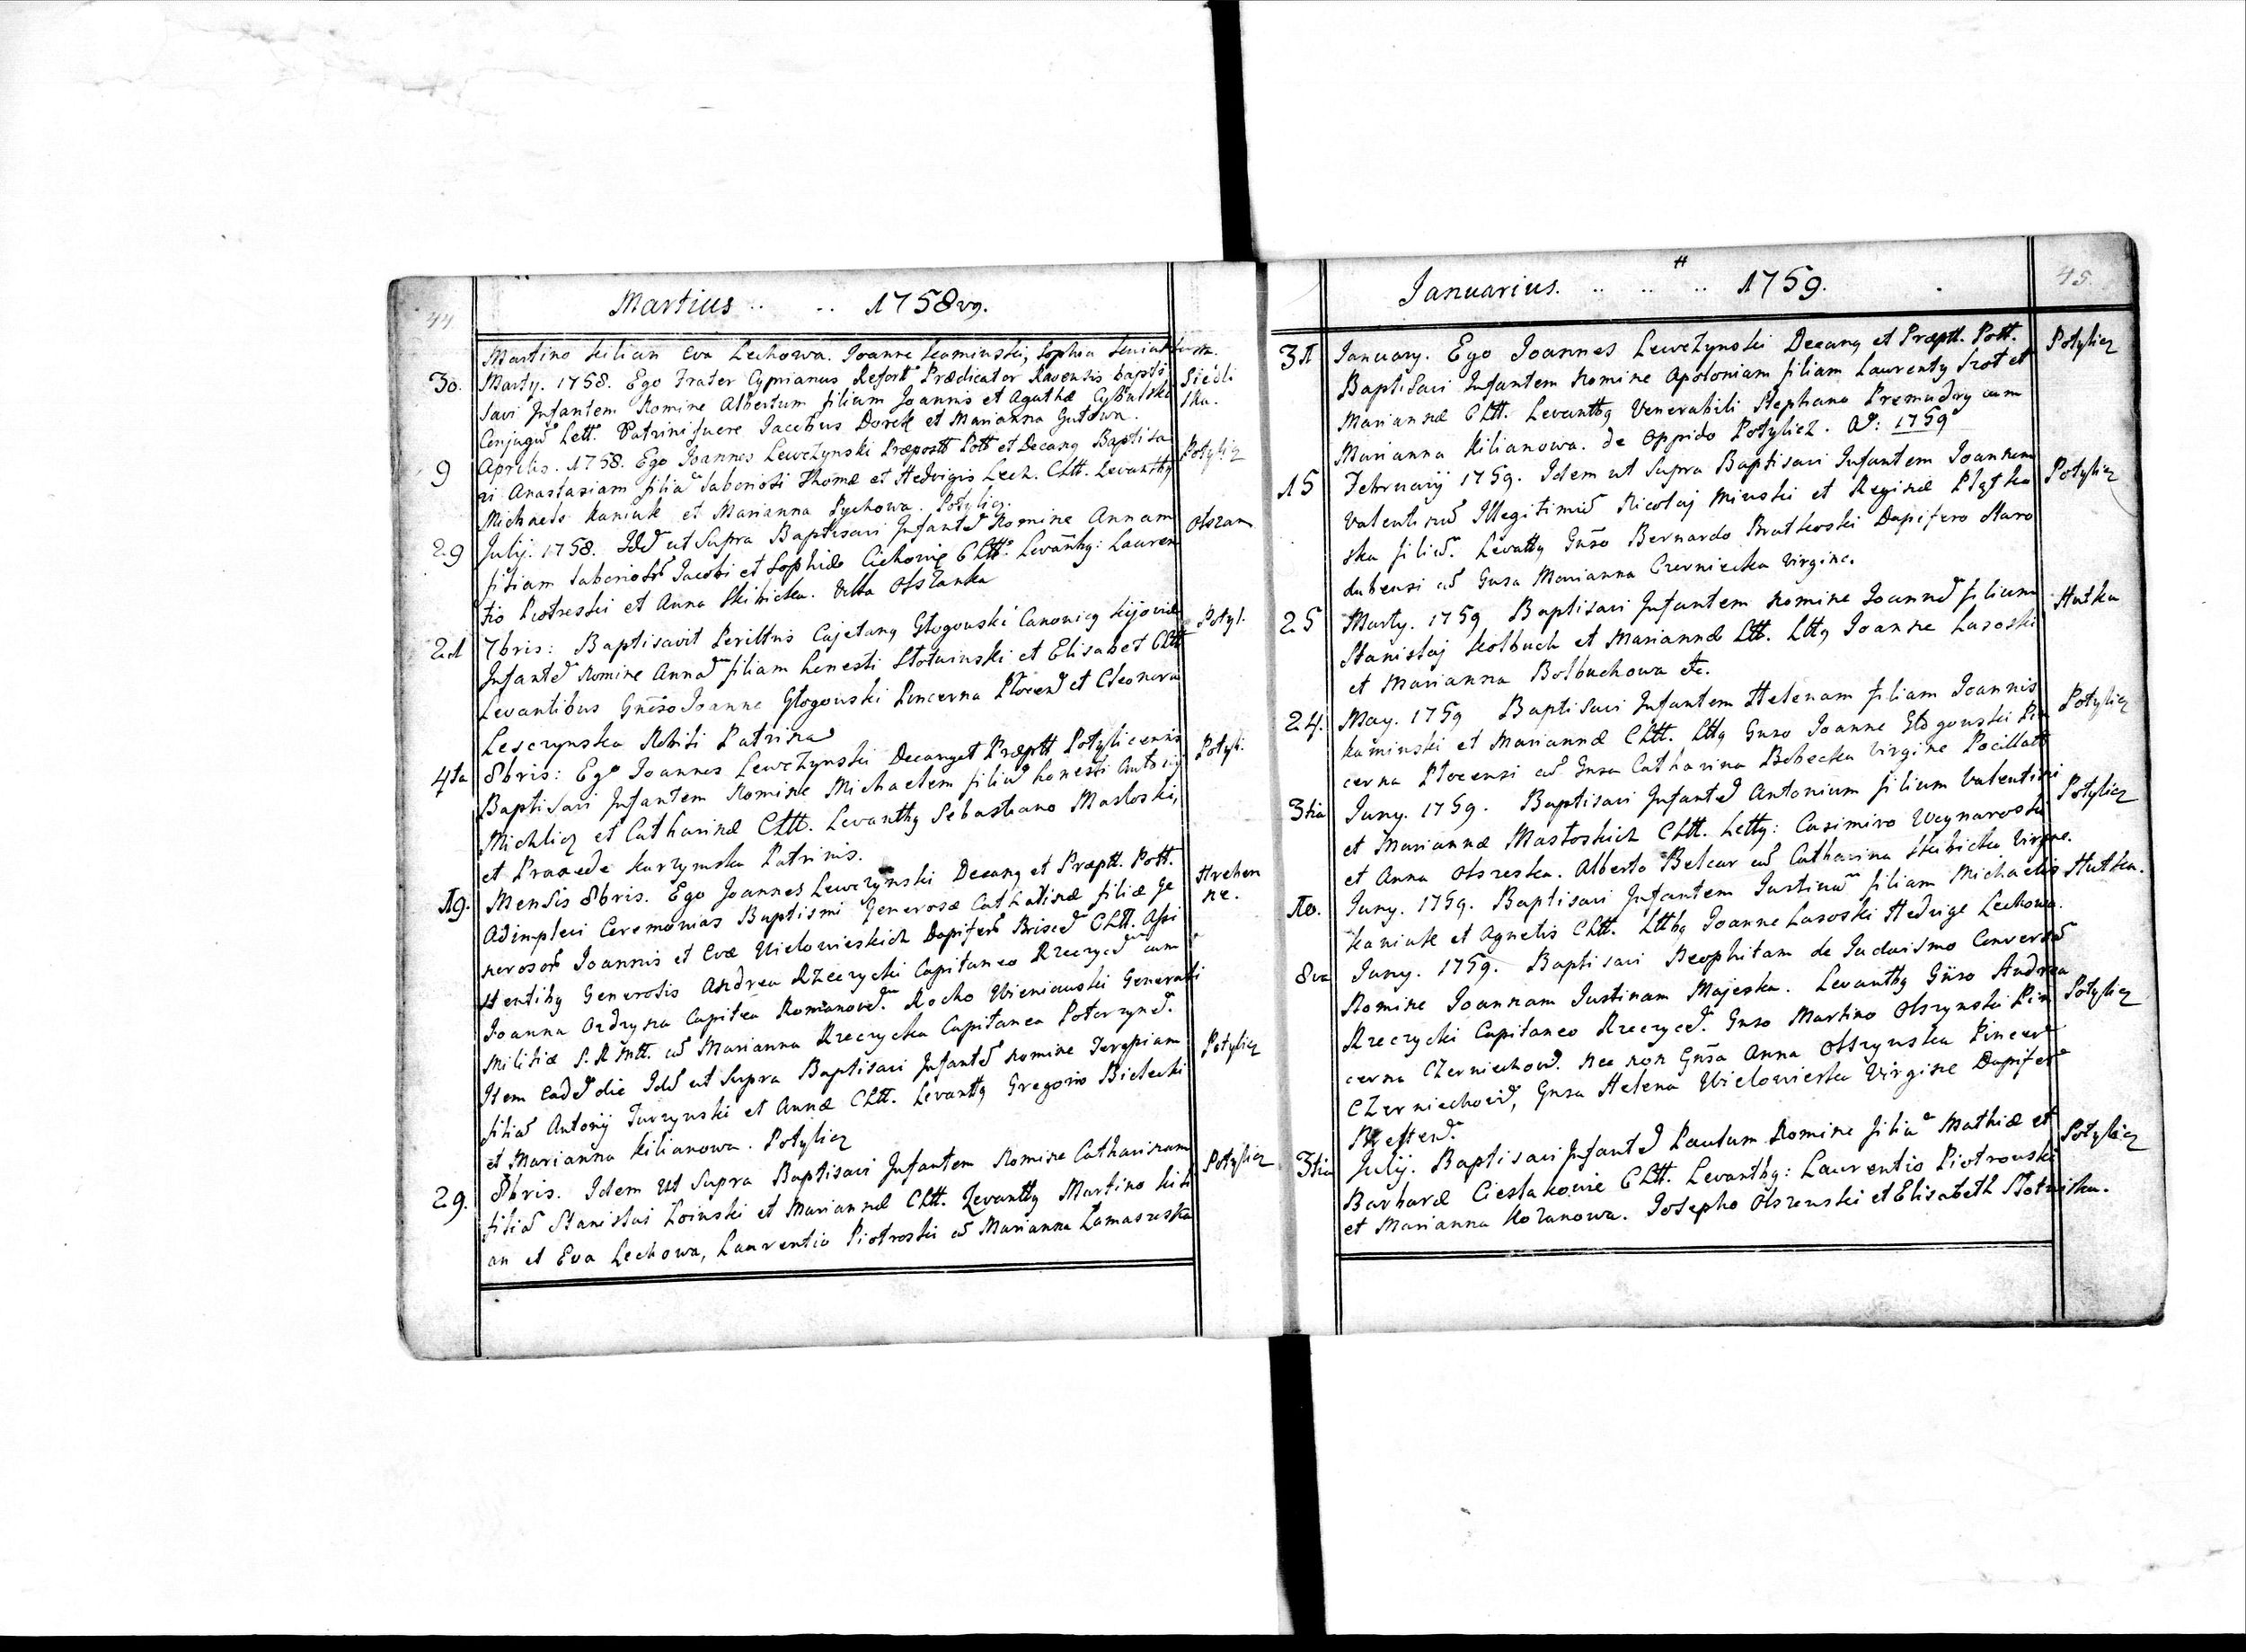 44
Martius .. .. 1758vg.
Martino Kilian Eva Lechowa. Joanne Kaminski, Sophia
30. Marty. 1758. Ego Frater Cyprianus Refortt Prædicator Ravensis bapti Siedli
savi Infantem Nomine Albertum filium Joannis et Agathæ Cybulski ska.
Conjugũ Lett. Patrini fuere Jacobus Dorek et Marianna Gutowa.
9 Aprilis. 1758. Ego Joannes Lewczynski Præpostt Pott et Decang Baptisa Potylicz
vi Anastasiam filiã laboriosi Thomæ et Hedvigis Lech. CLtt. Levanthg
Michaele Kaniuk et Marianna Pychowa. Potylicz.
29 Julij. 1758. Idẽ ut Supra Baptisavi Infantẽ Nomine Annam Olszan
filiam laboriosor̃ Jacobi et Sophiæ Cichowię CLtt. Levanthg: Lauren
tio Piotreski et Anna Skibicka. Villa Olszanka
21 7bris: Baptisavit Perilltris Cajetang Głogouski Canonicg Kijovie Potyl.
Infantẽ Nomine Annã filiam honesti Słotwinski et Elisabet CLtt
Levantibus Gnẽso Joanne Głogouski Pincerna Płocen̄ et Eleonora
Lesczynska Nobili Patrina
4ta 8bris: Ego Joannes Lewczynski Decang et Præptt Potylicensis Potyli:
Baptisavi Infantem Nomine Michaelem filiũ honesti Antonij
Michlicz et Catharinæ CLtt. Levanthg Sebastiano Masłoski,
et Praxede Kurzymska Patrinis.
19. Mensis 8bris. Ego Joannes Lewczynski Decang et Præptt. Pott. Hreben
Adimplevi Ceremonias Baptismi Generosæ Catharinæ filiæ Ge ne.
nerosor̃ Joannis et Evæ Wielowieskich Dapiferor̃ CLtt. Assi
stentibg Generosis Andrea Rzeczycki Capitaneo Rzeczyc̃ cum
Joanna Ordzyna Capitea Romanow̃. Rocho Wieniawski Generali
Militiæ S. R Mtt. cũ Marianna Rzeczycka Capitanea Poterzyn̄.
Item eadẽ die Idẽ ut Supra Baptisavi Infantẽ nomine Teresiam Potylicz
filiã Antonij Turzynski et Annæ CLtt. Levantg Gregorio Bielecki
et Marianna Kilianowa. Potylicz
29. 8bris. Idem ut Supra Baptisavi Infantem Nomine Catharinam Potylicz
filiã Stanislai Łoinski et Mariannæ CLtt. Levanttg Martino Kili
an et Eva Lechowa, Laurentio Piotroski cũ Marianna Tomaszeska
45
Ianuarius. .. .. .. 1759.
31 Ianuary. Ego Joannes Lewczynski Decang et Præptt. Pott. Potylicz
Baptisavi Infantem Nomine Apoloniam filiam Laurenty Szot et
Mariannæ CLtt. Levanthg Venerabili Stephano Premudry cum
Marianna Kilianowa. de Oppido Potylicz. Aõ: 1759
15 February 1759. Idem ut Supra Baptisavi Infantem Joannem Potylicz
Valentinũ Illegitimũ Nicolaj Minski et Reginæ Plątko
ska filiũ. Levattg Gnso Bernardo Bratkoski Dapifero Staro
dubensi cũ Gnsa Marianna Czerniecka Virgine.
25 Marty. 1759 Baptisavi Infantem Nomine Joannẽ filium Hutka
Stanislaj Kolbuch et Mariannæ Ltt. Lttg Joanne Lasoski
et Marianna Bolbuchowa etc.
24. May. 1759 Baptisavi Infantem Helenam filiam Joannis Potylicz
Kaminski et Mariannæ CLtt. Lttg Gnso Joanne Głogouski Pin
cerna Płocensi cũ Gnsa Catharina Bobecka Virgine Pocillatt
3tia Juny. 1759. Baptisavi Infantẽ Antonium filium Valentini Potylicz
et Mariannæ Masłoskich CLtt. Lettg: Casimiro Weynaroski
et Anna Olszeska. Alberto Belcar cũ Catharina Skibicka Virgne.
10. Juny. 1759. Baptisavi Infantem Justinã filiam Michaelis Hutka.
Kaniuk et Agnetis CLtt. Lttbg Joanne Lasoski Hedvige Lechowa.
8va Juny. 1759. Baptisavi Neophitam de Judaismo Conversã
Nomine Joannam Justinam Majeska. Levanthg Gnso Andrea Potylicz
Rzeczycki Capitaneo Rzeczyceñ. Gnso Martino Olszynski Pin
cerna Czerniechow̃. nec non Gnsa Anna Olszynska Pincer̃
Czerniechow̃, Gnsa Helena Wielowieska Virgine Dapifer̃
Bresten̄.
3tia Julij. Baptisavi Infantẽ Paulum Nomine filiũ Mathiæ et Potylicz
Barbaræ Cieslakowie CLtt. Levanthg: Laurentio Piotrouski
et Marianna Kozanowa. Josepho Olszewski et Elisabeth Słotwiska.